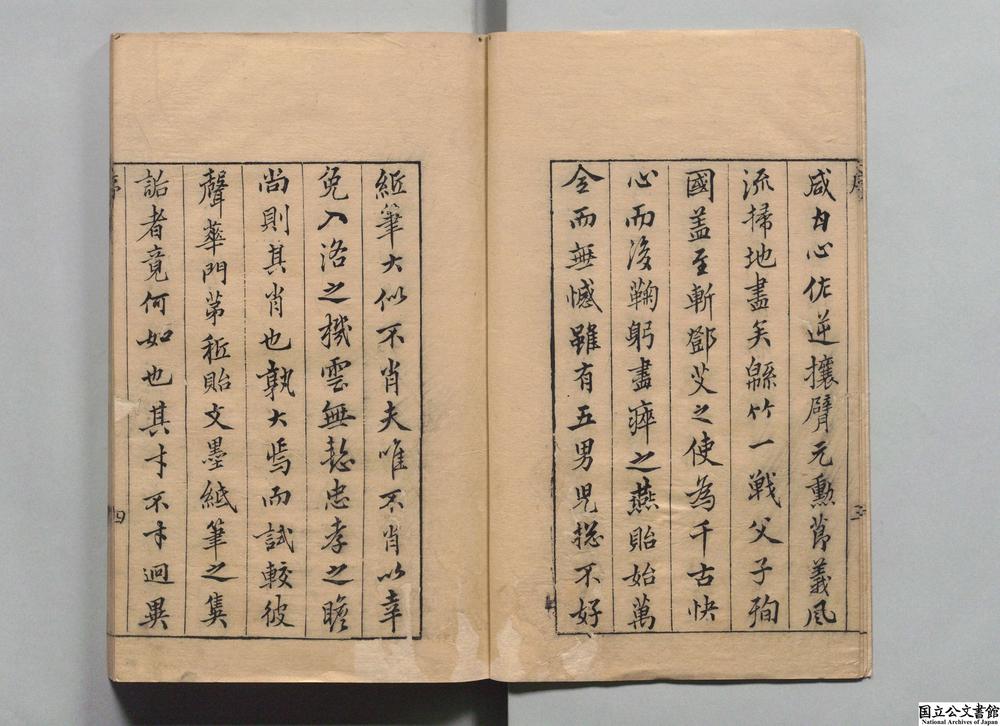 序
三
咸甘心佐逆攘臂元勳節義風
流掃地盡矣緜竹一戰父子殉
國盖至斬鄧艾之使為千古快
心而後鞠躬盡瘁之燕貽始萬
全而無憾雖有五男兒總不好
紙筆大似不肖夫唯不肖以幸
免入洛之機雲無愆忠孝之瞻
尚則其肖也孰大焉而試較彼
聲華門第秪貽文墨紙筆之
詒者竟何如也其才不才迥異
序
四
国立公文書館
National Archives of Japan